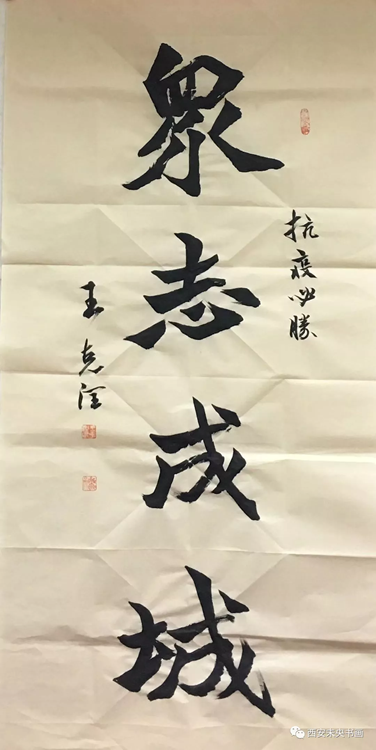 抗疫必勝
眾志成城
王克
西安未央书画